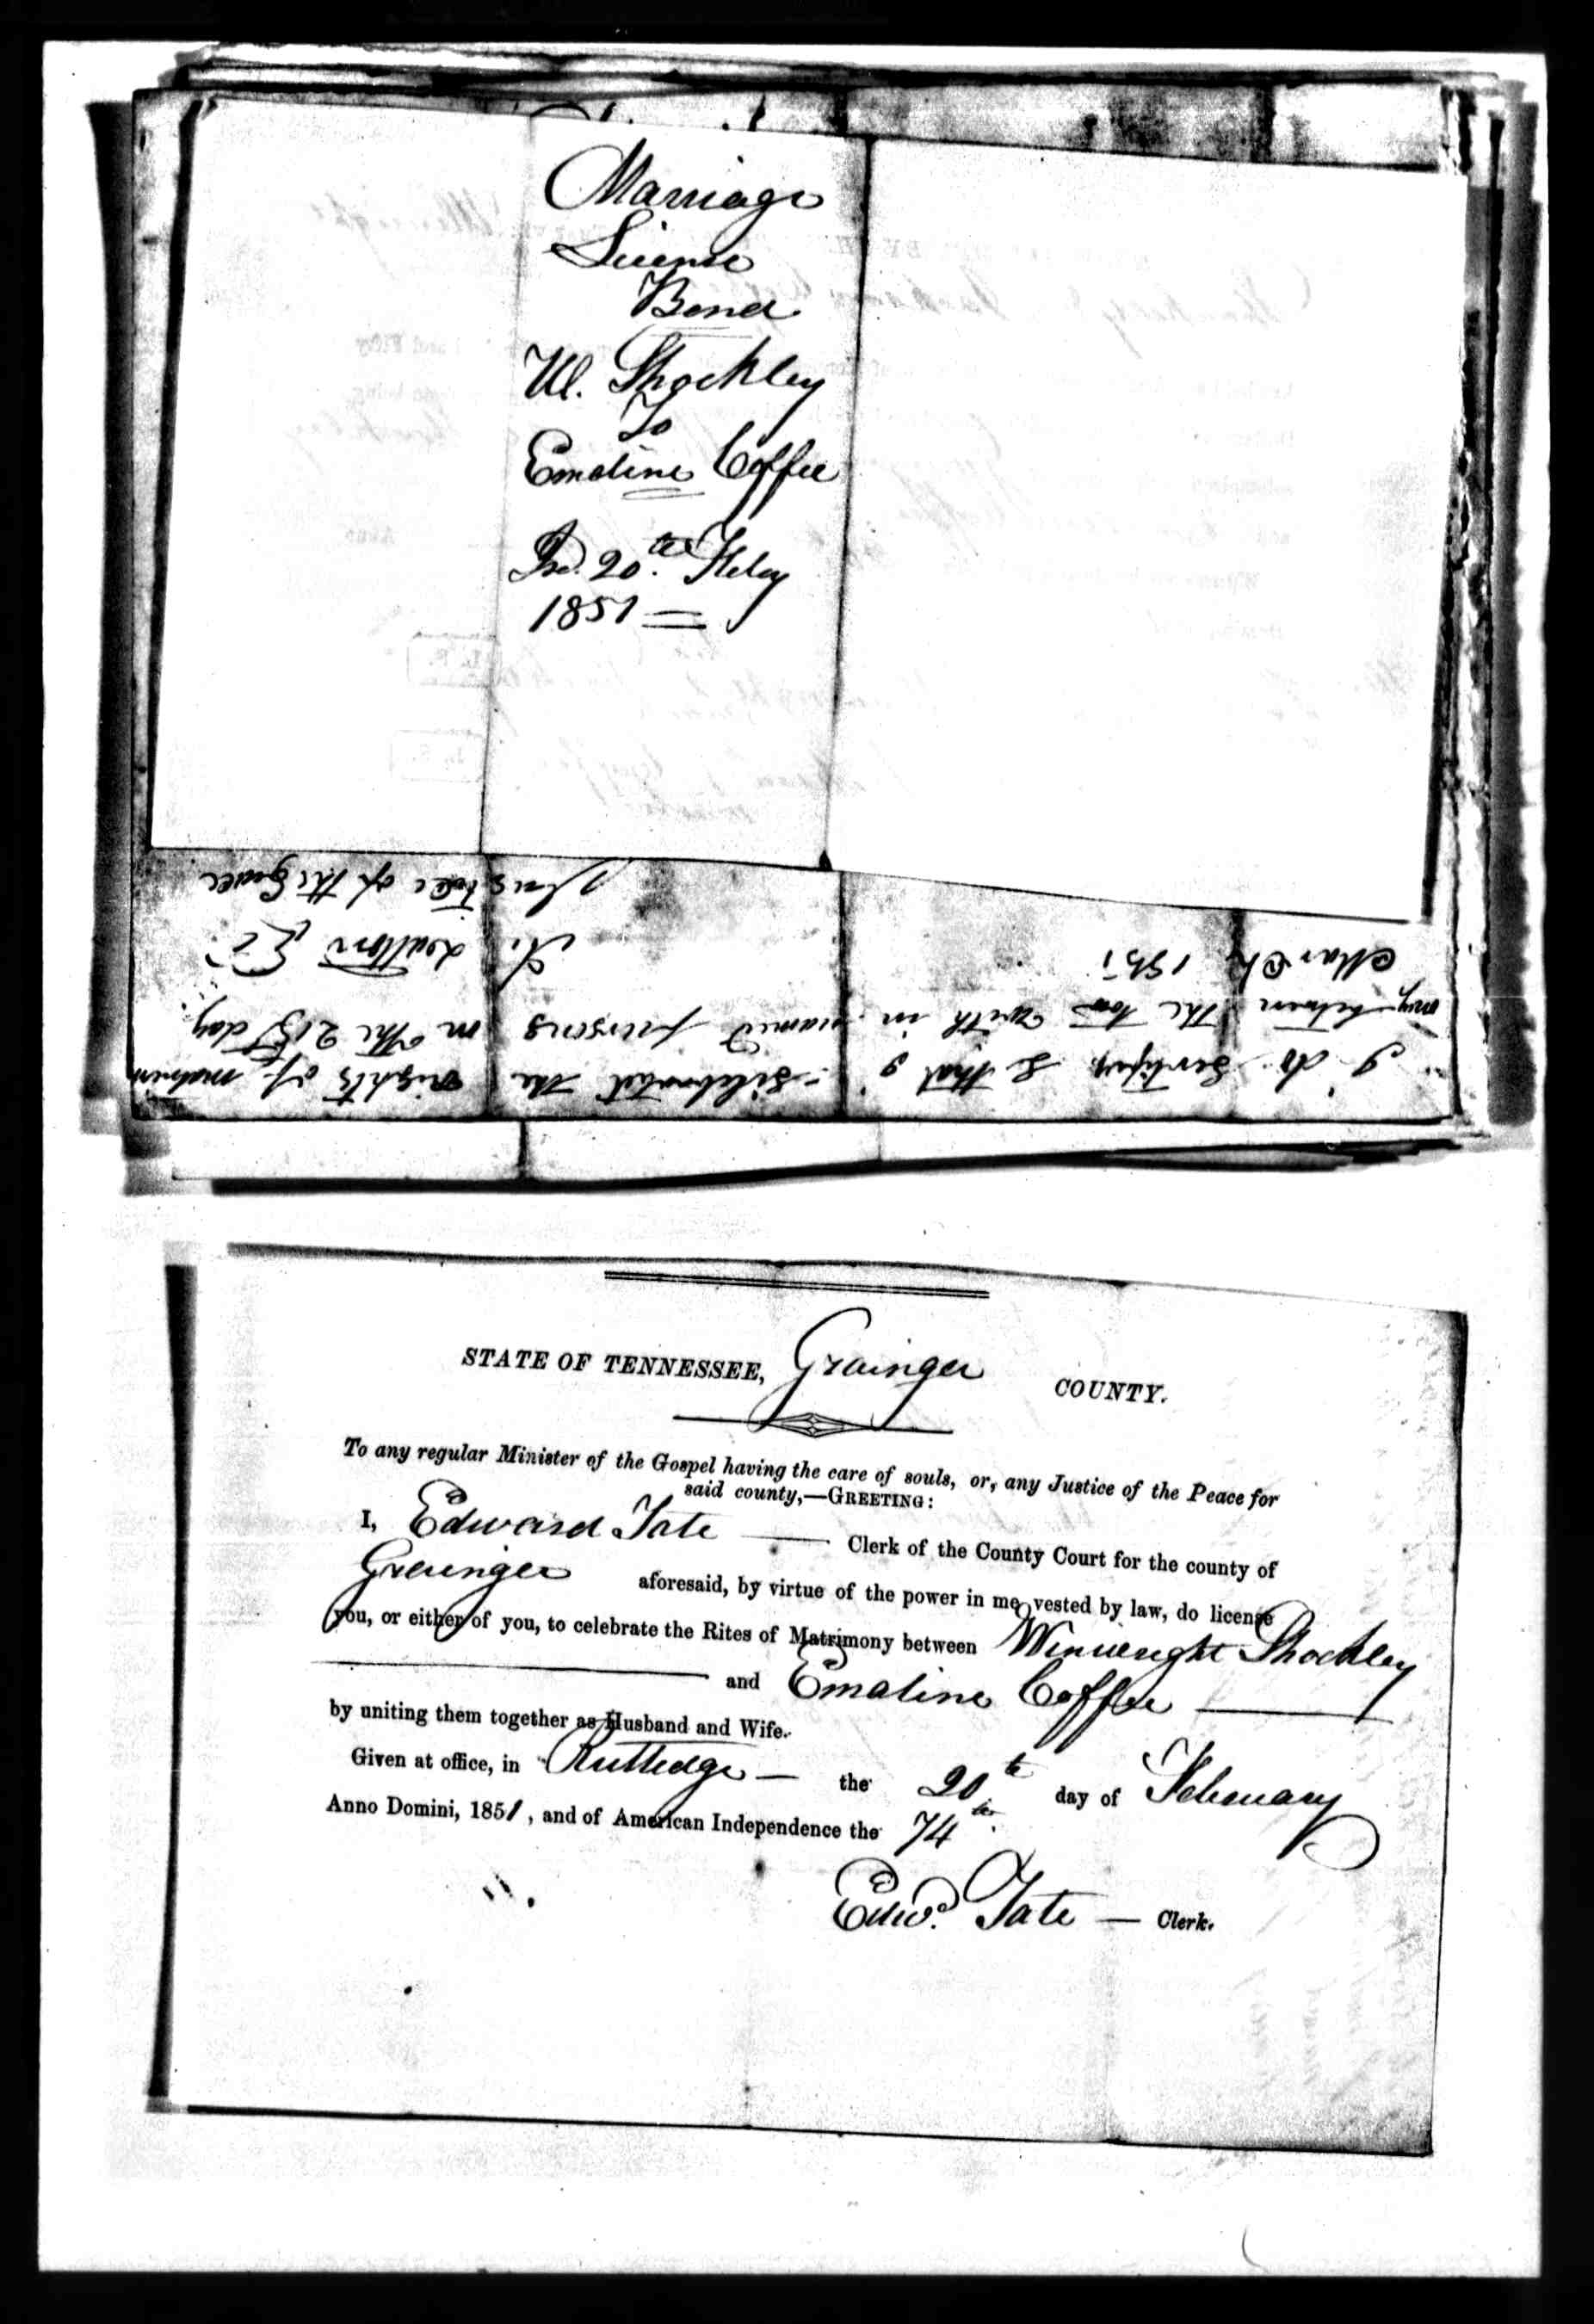 Marriage
License
Bond
W. Shockley
To
Emeline Coffee
Isd. 20th Feby
1851
I do Sertify that I Selebrated the rights of matrim
ony between the tow with in named persons on the 21st day
March 1851
Justice of the peace
STATE OF TENNESSEE, Grainger COUNTY.
To any regular Minister of the Gospel having the care of souls, or, any Justice of the Peace for
said county,—GREETING:
I, Edward Tate — Clerk of the County Court for the county of
Grainger aforesaid, by virtue of the power in me vested by law, do license
you, or either of you, to celebrate the Rites of Matrimony between Winwright Shockley
and Emaline Coffee
by uniting them together as Husband and Wife.
Given at office, in Rutledge — the 20th day of February
Anno Domini, 1851, and of American Independence the 74th.
Edwd. Tate — Clerk.